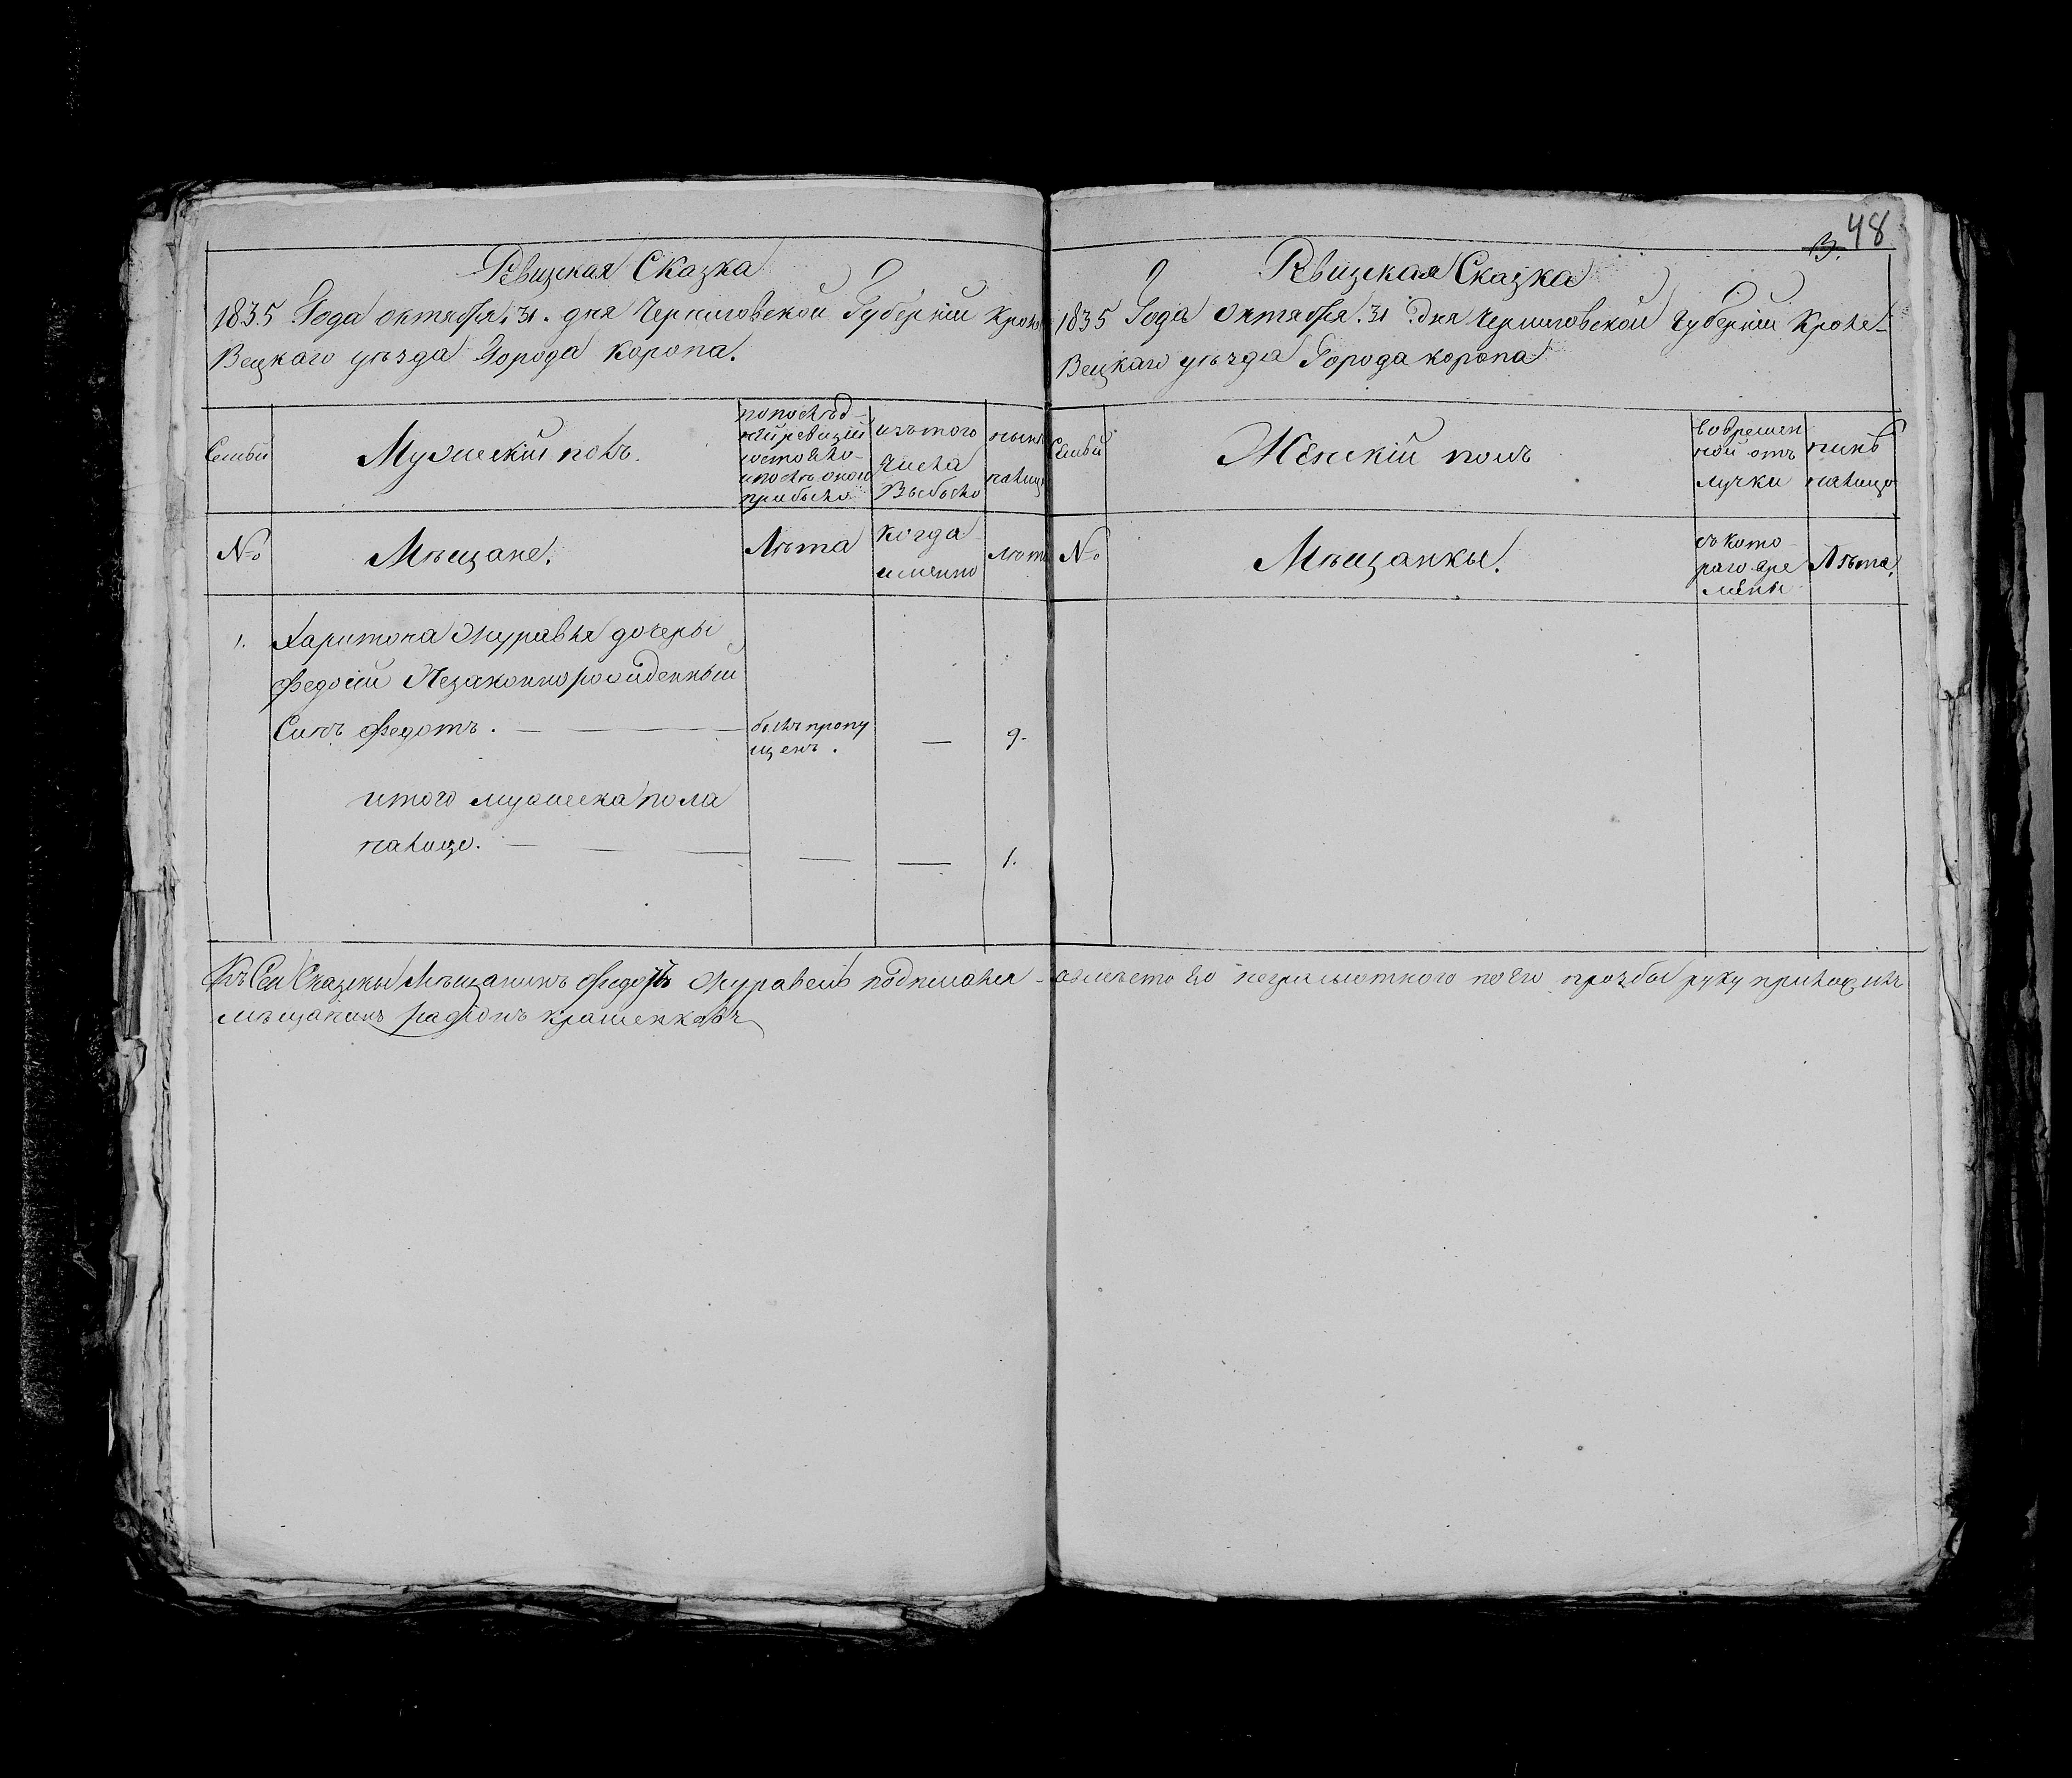 Ревизская Сказка
1835 Года октября 31. дня Черниговской Губерніи Кроле
Вецкаго уѣзда Города Коропа.
Семьи
Мужескій полъ.
попослѣд-
ней ревизіи
состояло
ипослѣ оной
прибыло
изътого
числа
Выбыло
нынѣ
налицо
№
Мѣщане.
Лѣта
Когда
именно
Лѣта
1. Харитона Журавля дочеры
Федосіи Незаконнорожденный
Синъ Федотъ. — — былъ пропу
щенъ. — 9.
итого мужеска пола
налицо. — — — — — 1.
48
Ревизская Сказка
1835 Года Октября 31 дня Черниговской Губерніи Кроле-
Вецкаго уѣзда Города коропа
Семьи
Женскій полъ
вовремен
ной отъ
лучки
нинѣ
налицо
№
Мѣщанкы.
съ кото
раго вре
мены
Лѣта.
Къ Сей Сказкы Мѣщанинъ Журавель подписался - авмѣсто Его неграмотного по Его прозбы руку приложилъ
мѣщанинъ Радіонъ крашенковъ